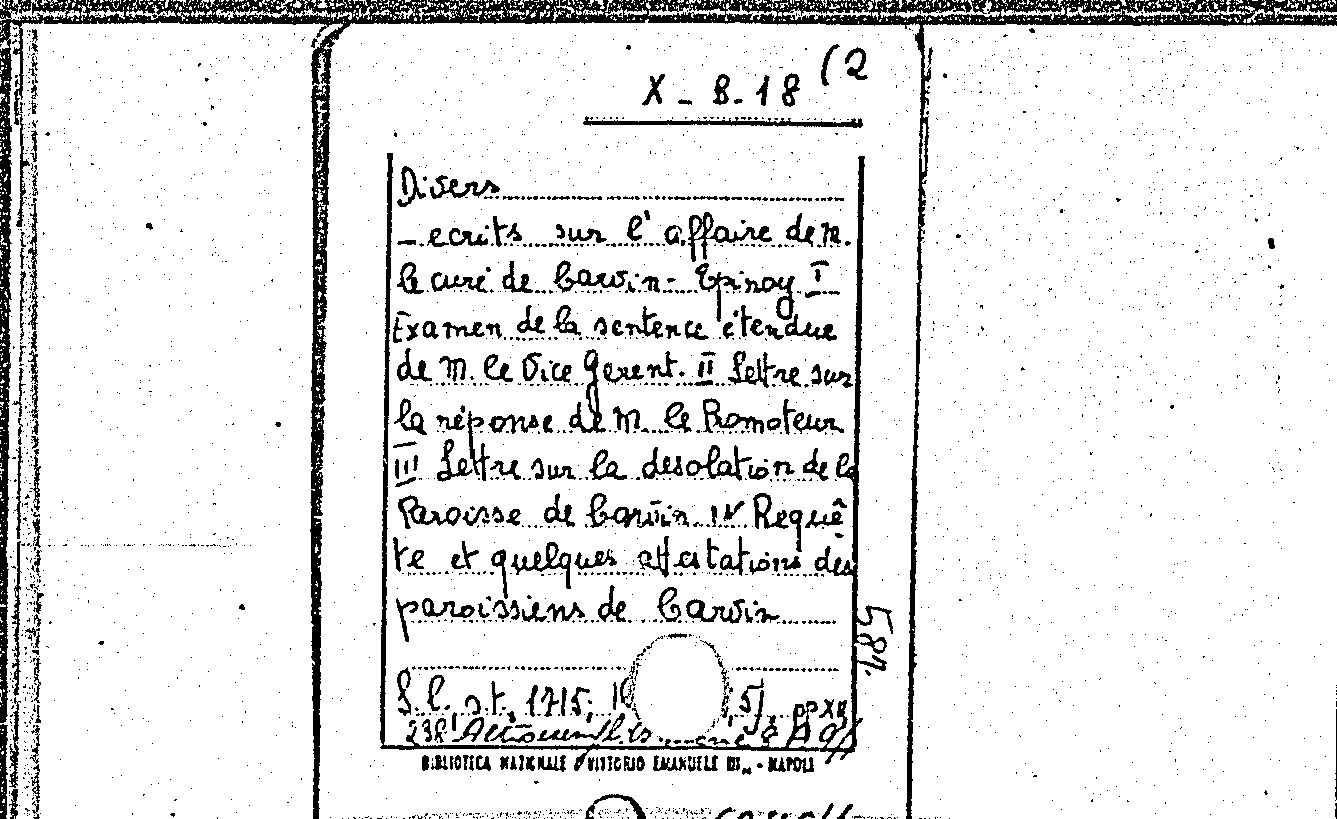 X - B. 18 (2
Divers
- ecrits sur l'affaire de M.
le curé de Carvin - Epinoy I
Examen de la sentence étendue
de M. le Vice Gerent. II Lettre sur
la réponse de M. le Promoteur
III Lettre sur la désolation de la
Paroisse de Carvin IV Requê
te et quelques attestations des
paroissiens de Carvin
S. l. et t., 1715, 5), pp XII
238
BIBLIOTECA NAZIONALE VITTORIO EMANUELE III - NAPOLI